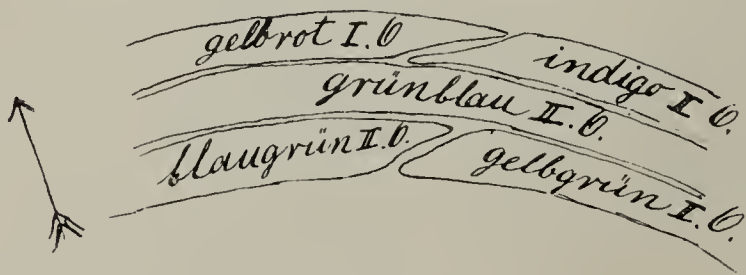 gelbrot I. O
indigo II O.
grünblau II. O.
blaugrün II. O.
gelbgrün I. O.